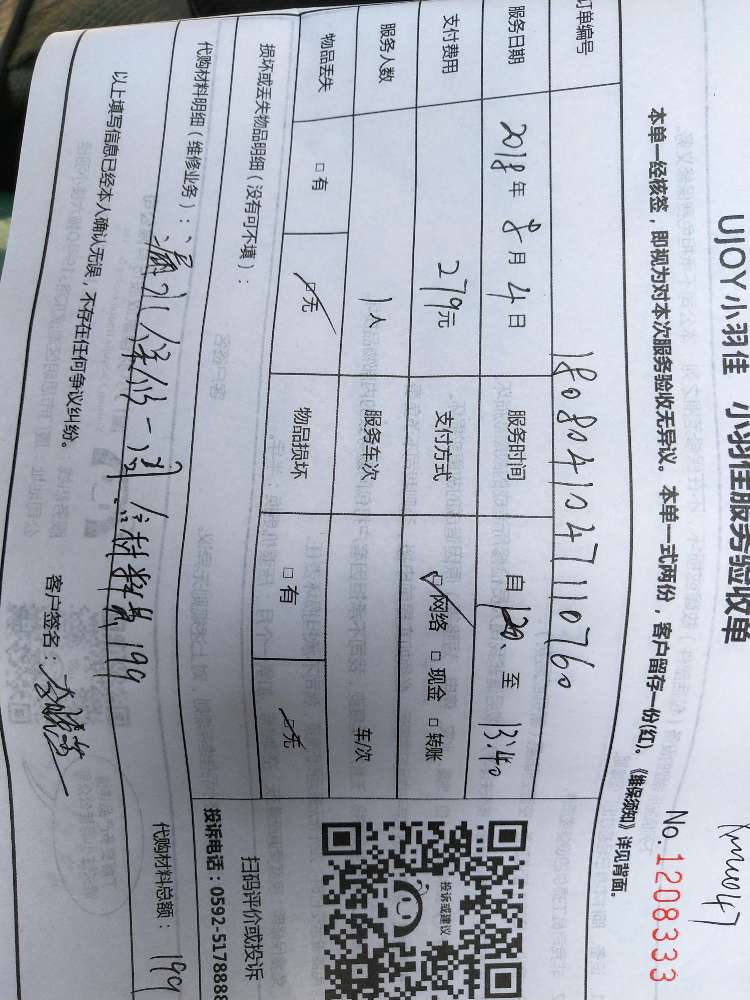 UJOY小羽佳 小羽佳服务验收单
No.1208333
本单一经核签，即视为对本次服务验收无异议。本单一式两份，客户留存一份(红)。《维保须知》详见背面。
订单编号 1808041047110760
服务日期 2018年8月4日 服务时间 自 至 13:40
支付费用 279元 支付方式 网络 现金 转账
服务人数 1人 服务车次 车/次
物品丢失 有 无 物品损坏 有 无
损坏或丢失物品明细（没有可不填）：
代购材料明细（维修业务）：漏水保修一 材料费199
代购材料总额：199
以上填写信息已经本人确认无误，不存在任何争议纠纷。
客户签名：
投诉或建议
扫码评价或投诉
投诉电话：0592-5178888